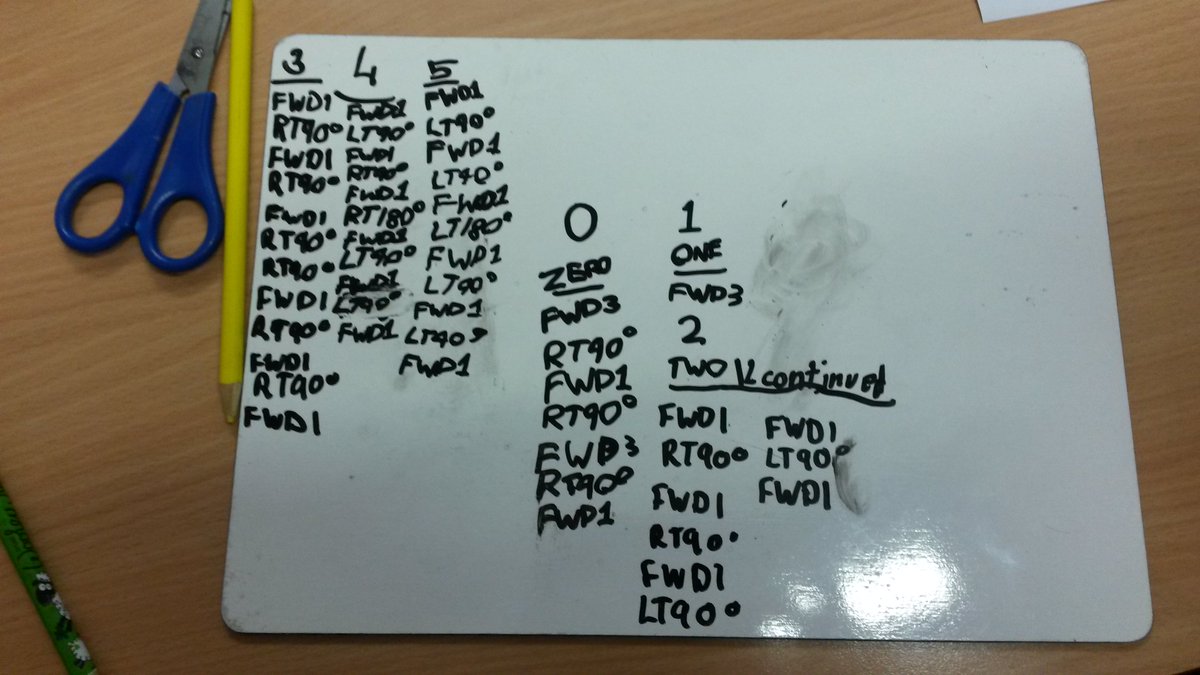 3
FWD1
RT90°
FWD1
RT90°
FWD1
RT90°
RT90°
FWD1
RT90°
FWD1
RT90°
FWD1
4
FWD1
LT90°
FWD1
RT90°
FWD1
RT180°
FWD1
LT90°
FWD1
LT90°
FWD1
5
FWD1
LT90°
FWD1
LT90°
FWD1
LT180°
FWD1
LT90°
FWD1
LT90°
FWD1
0
ZERO
FWD3
RT90°
FWD1
RT90°
FWD3
RT90°
FWD1
1
ONE
FWD3
2
TWO continued
FWD1
RT90°
FWD1
RT90°
FWD1
LT90°
FWD1
LT90°
FWD1